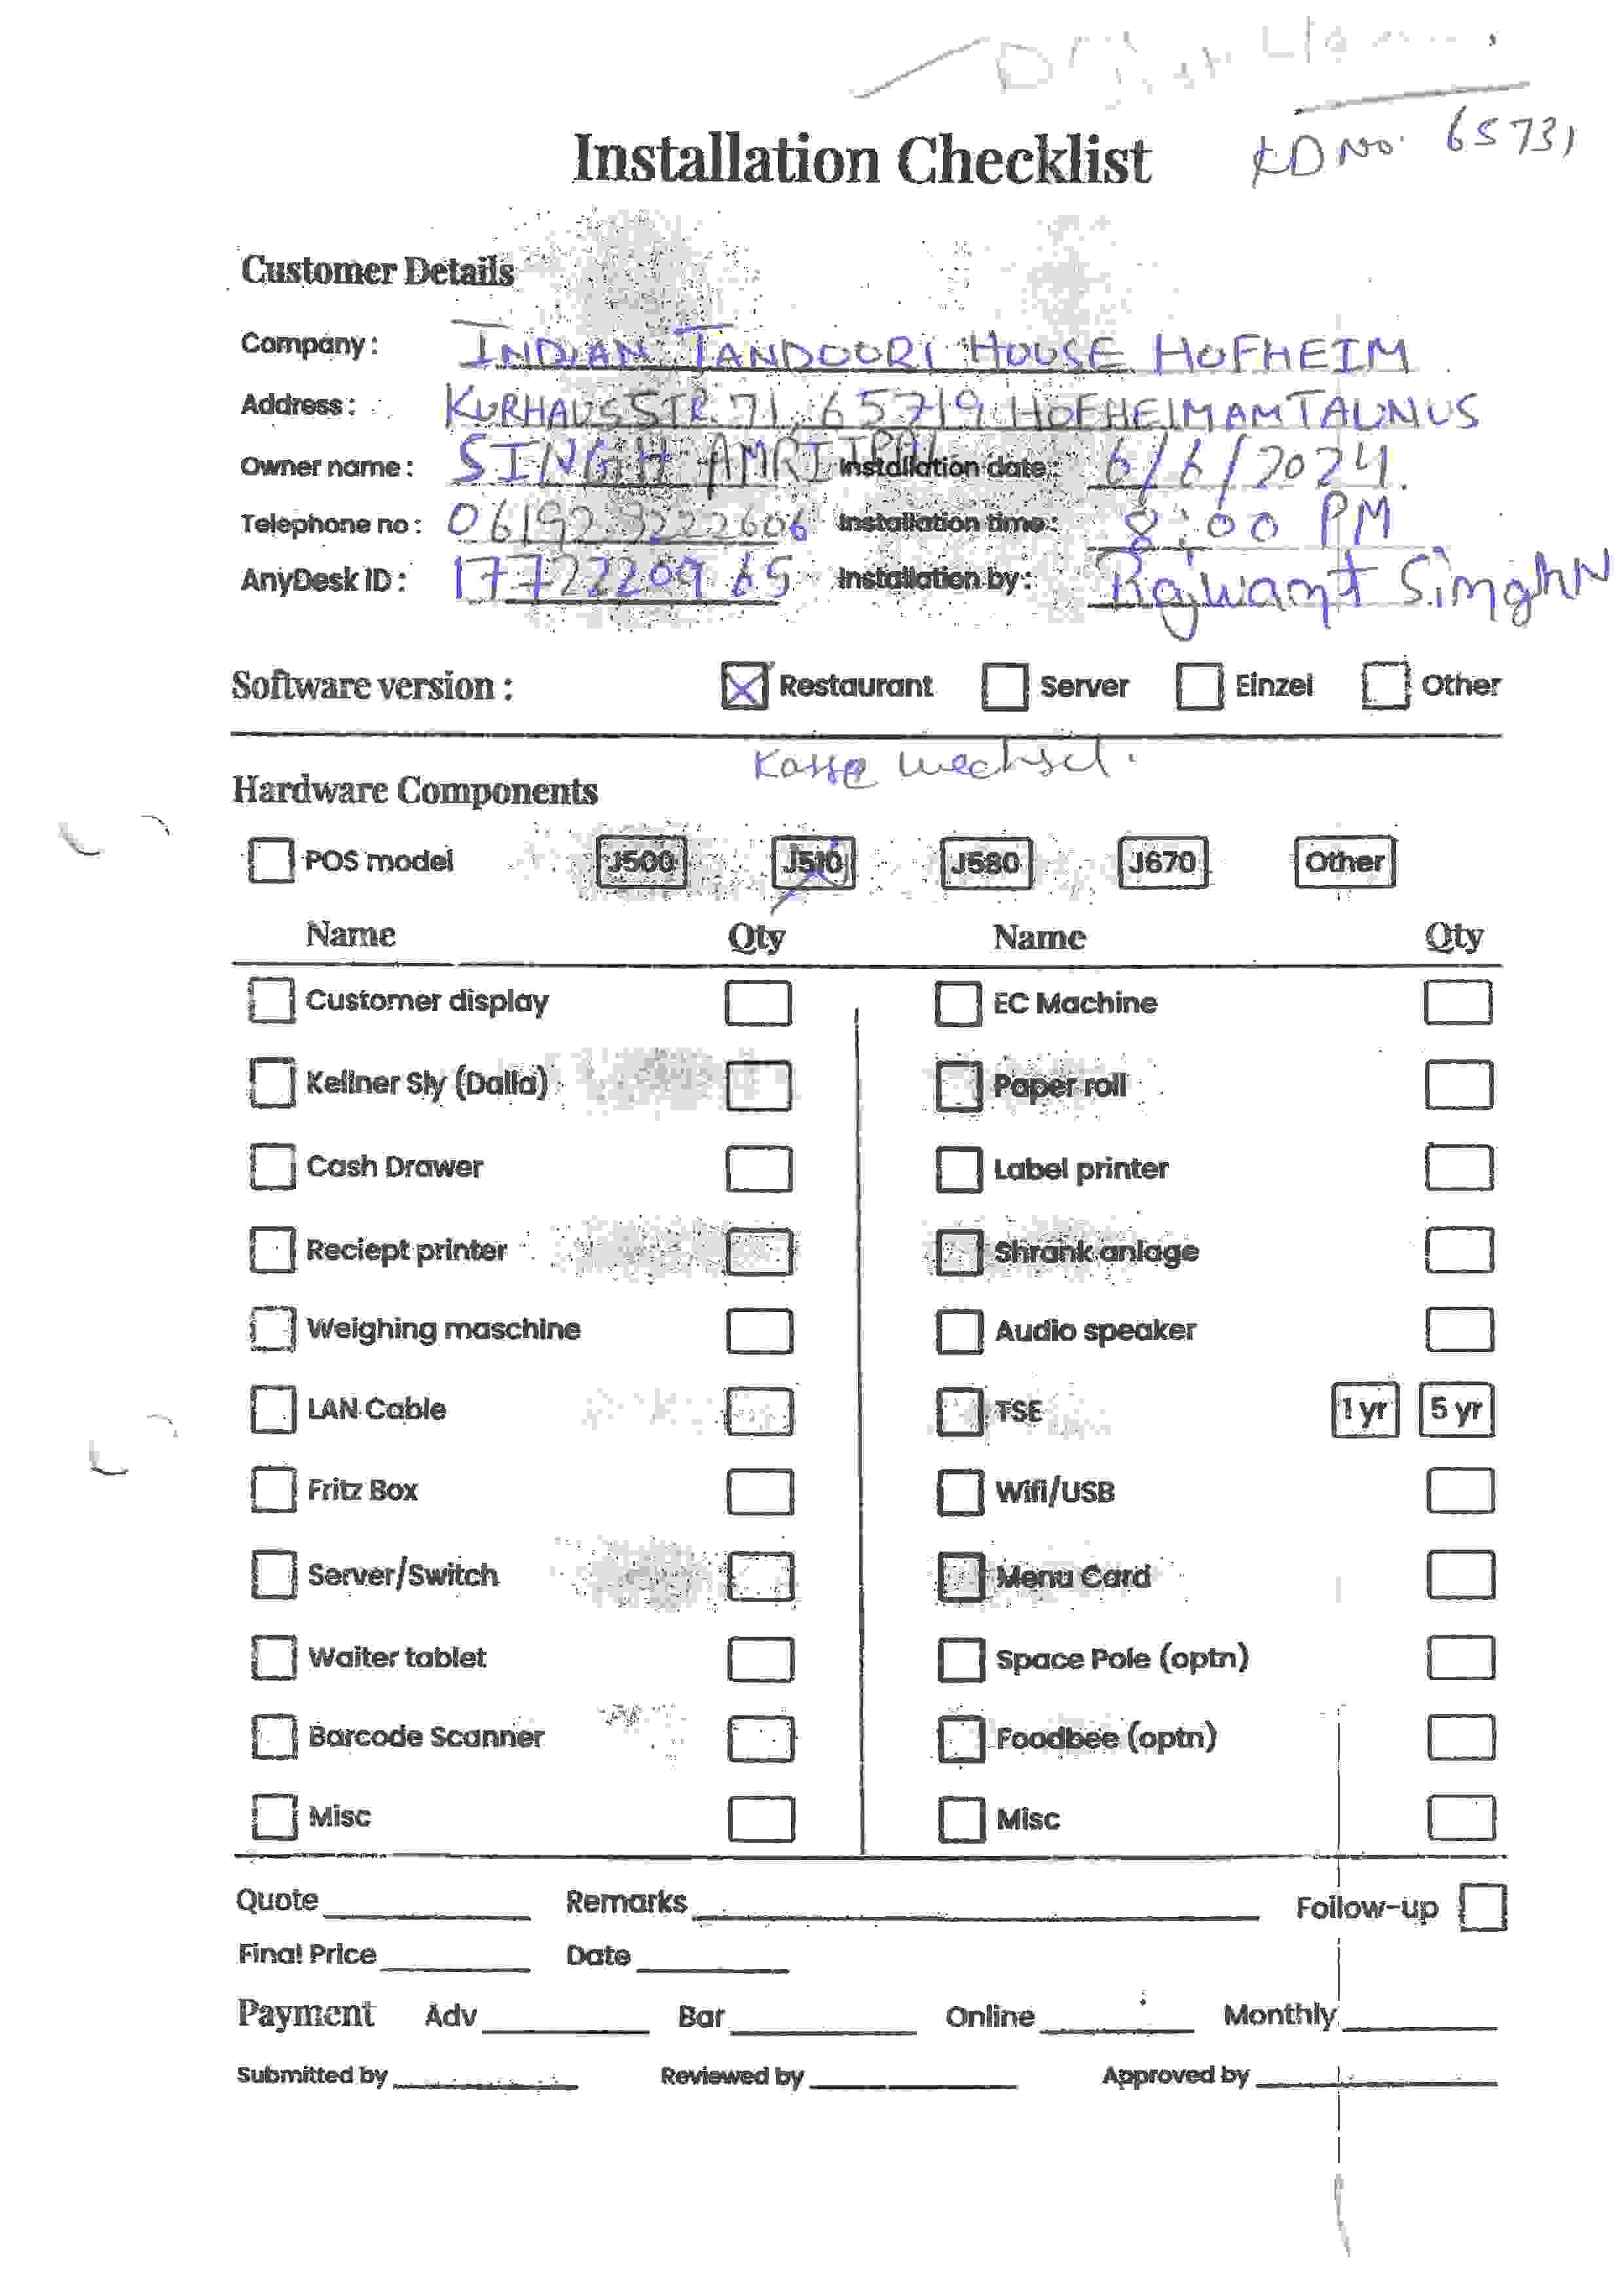 Installation Checklist
KD No. 65731
Customer Details
Company : INDIAN TANDOORI HOUSE HOFHEIM
Address : KURHAUSSTR. 71, 65719 HOFHEIM AM TAUNUS
Owner name : SINGH AMRITPAL Installation date : 6/6/2024
Telephone no : 06192 9222606 Installation time : 8:00 PM
AnyDesk ID : 1772220965 Installation by : Rajwant Singh N
Software version : Restaurant Server Einzel Other
Kasse Wechsel.
Hardware Components
POS model J500 J510 J580 J670 Other
Name Qty Name Qty
Customer display EC Machine
Kellner Sly (Dalla) Paper roll
Cash Drawer Label printer
Reciept printer Shrank anlage
Weighing maschine Audio speaker
LAN Cable TSE 1 yr 5 yr
Fritz Box Wifi/USB
Server/Switch Menu Card
Waiter tablet Space Pole (optn)
Barcode Scanner Foodbee (optn)
Misc Misc
Quote Remarks Follow-up
Final Price Date
Payment Adv Bar Online Monthly
Submitted by Reviewed by Approved by